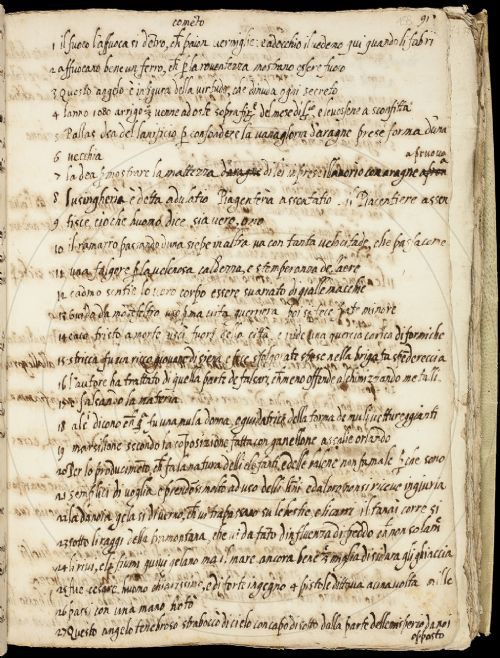 comēto
91
1 il fuoco l'affuoca si d'etro, ch̄ paion vermiglie: e adocchio il vedemo qui quando li fabri
2 affuocano bene un ferro, ch̄ p la roventezza mostrano essere fuoco
3 Questo angelo è in figura della virtude, che dinuda ogni secreto
4 L'anno 1080 arrigo 3 venne ad oste sopra del mese di e levossene a sconfitta
5 Pallas dea del lanificio p confondere la vanagloria d'aragne prese forma d'una
6 vecchia
a pruova
7 la dea p mostrare la mattezza di lei imprese il lavorio con aragne
8 Lusingheria è detta adulatio Piagenteria assentatio. il Piacentiere assen
9 tisce, cioè che huomo dice, sia vero, o no
10 il ramarro passando d'una siepe in altra va con tanta velocitade, che pas la come
11 una folgore p la velenosa caldezza, e stemperanza de l'aere
12 cadmo sentio lo vero corpo essere svariato di gialle macchie
13 Guido da montefeltro uso in sua vita guerriera poi se fece frate minore
14 eaco tristo a morte uscì fuori de la citta, e vide una quercia carica di formiche
15 stricca fu un ricco giovane di siena, e fece sfolgorate spese nella brigata spendereccia
16 l'autore ha trattato di quella parte de falsari, ch̄ meno offende alchimizzando metalli,
17 e falsando la materia
18 alc' dicono ch̄ fu una mula donna, e guidatrice della torma de muli, vetture, e giganti
19 marsilione secondo la composizione fatta con ganellone assalie orlando
20 Per lo producimēto, ch̄ fa la natura delli elefanti, e delle balene non fa male che sono
21 semplici di voglia, e prendonsi molto ad uso delli hōi e da loro non si riceve ingiuria
22 la danoia gela si di verno, ch̄ vi trapassano su le bestie, e li carri il tanai corre sì
23 sotto li raggi della tramontana, che vi da fato d'influenza di freddo ch̄ non solam̄
24 li rivi, e le fiumi quivi gelano, ma il mare ancora bene miglia
25 fue cesare huomo chiarissimo, e di forte ingegno 4 pistole dettava a una volta mille
26 passi con una mano noto
27 Questo angelo tenebroso straboccò di cielo con capo di sotto dalla parte dell'emisperio da noi
opposto